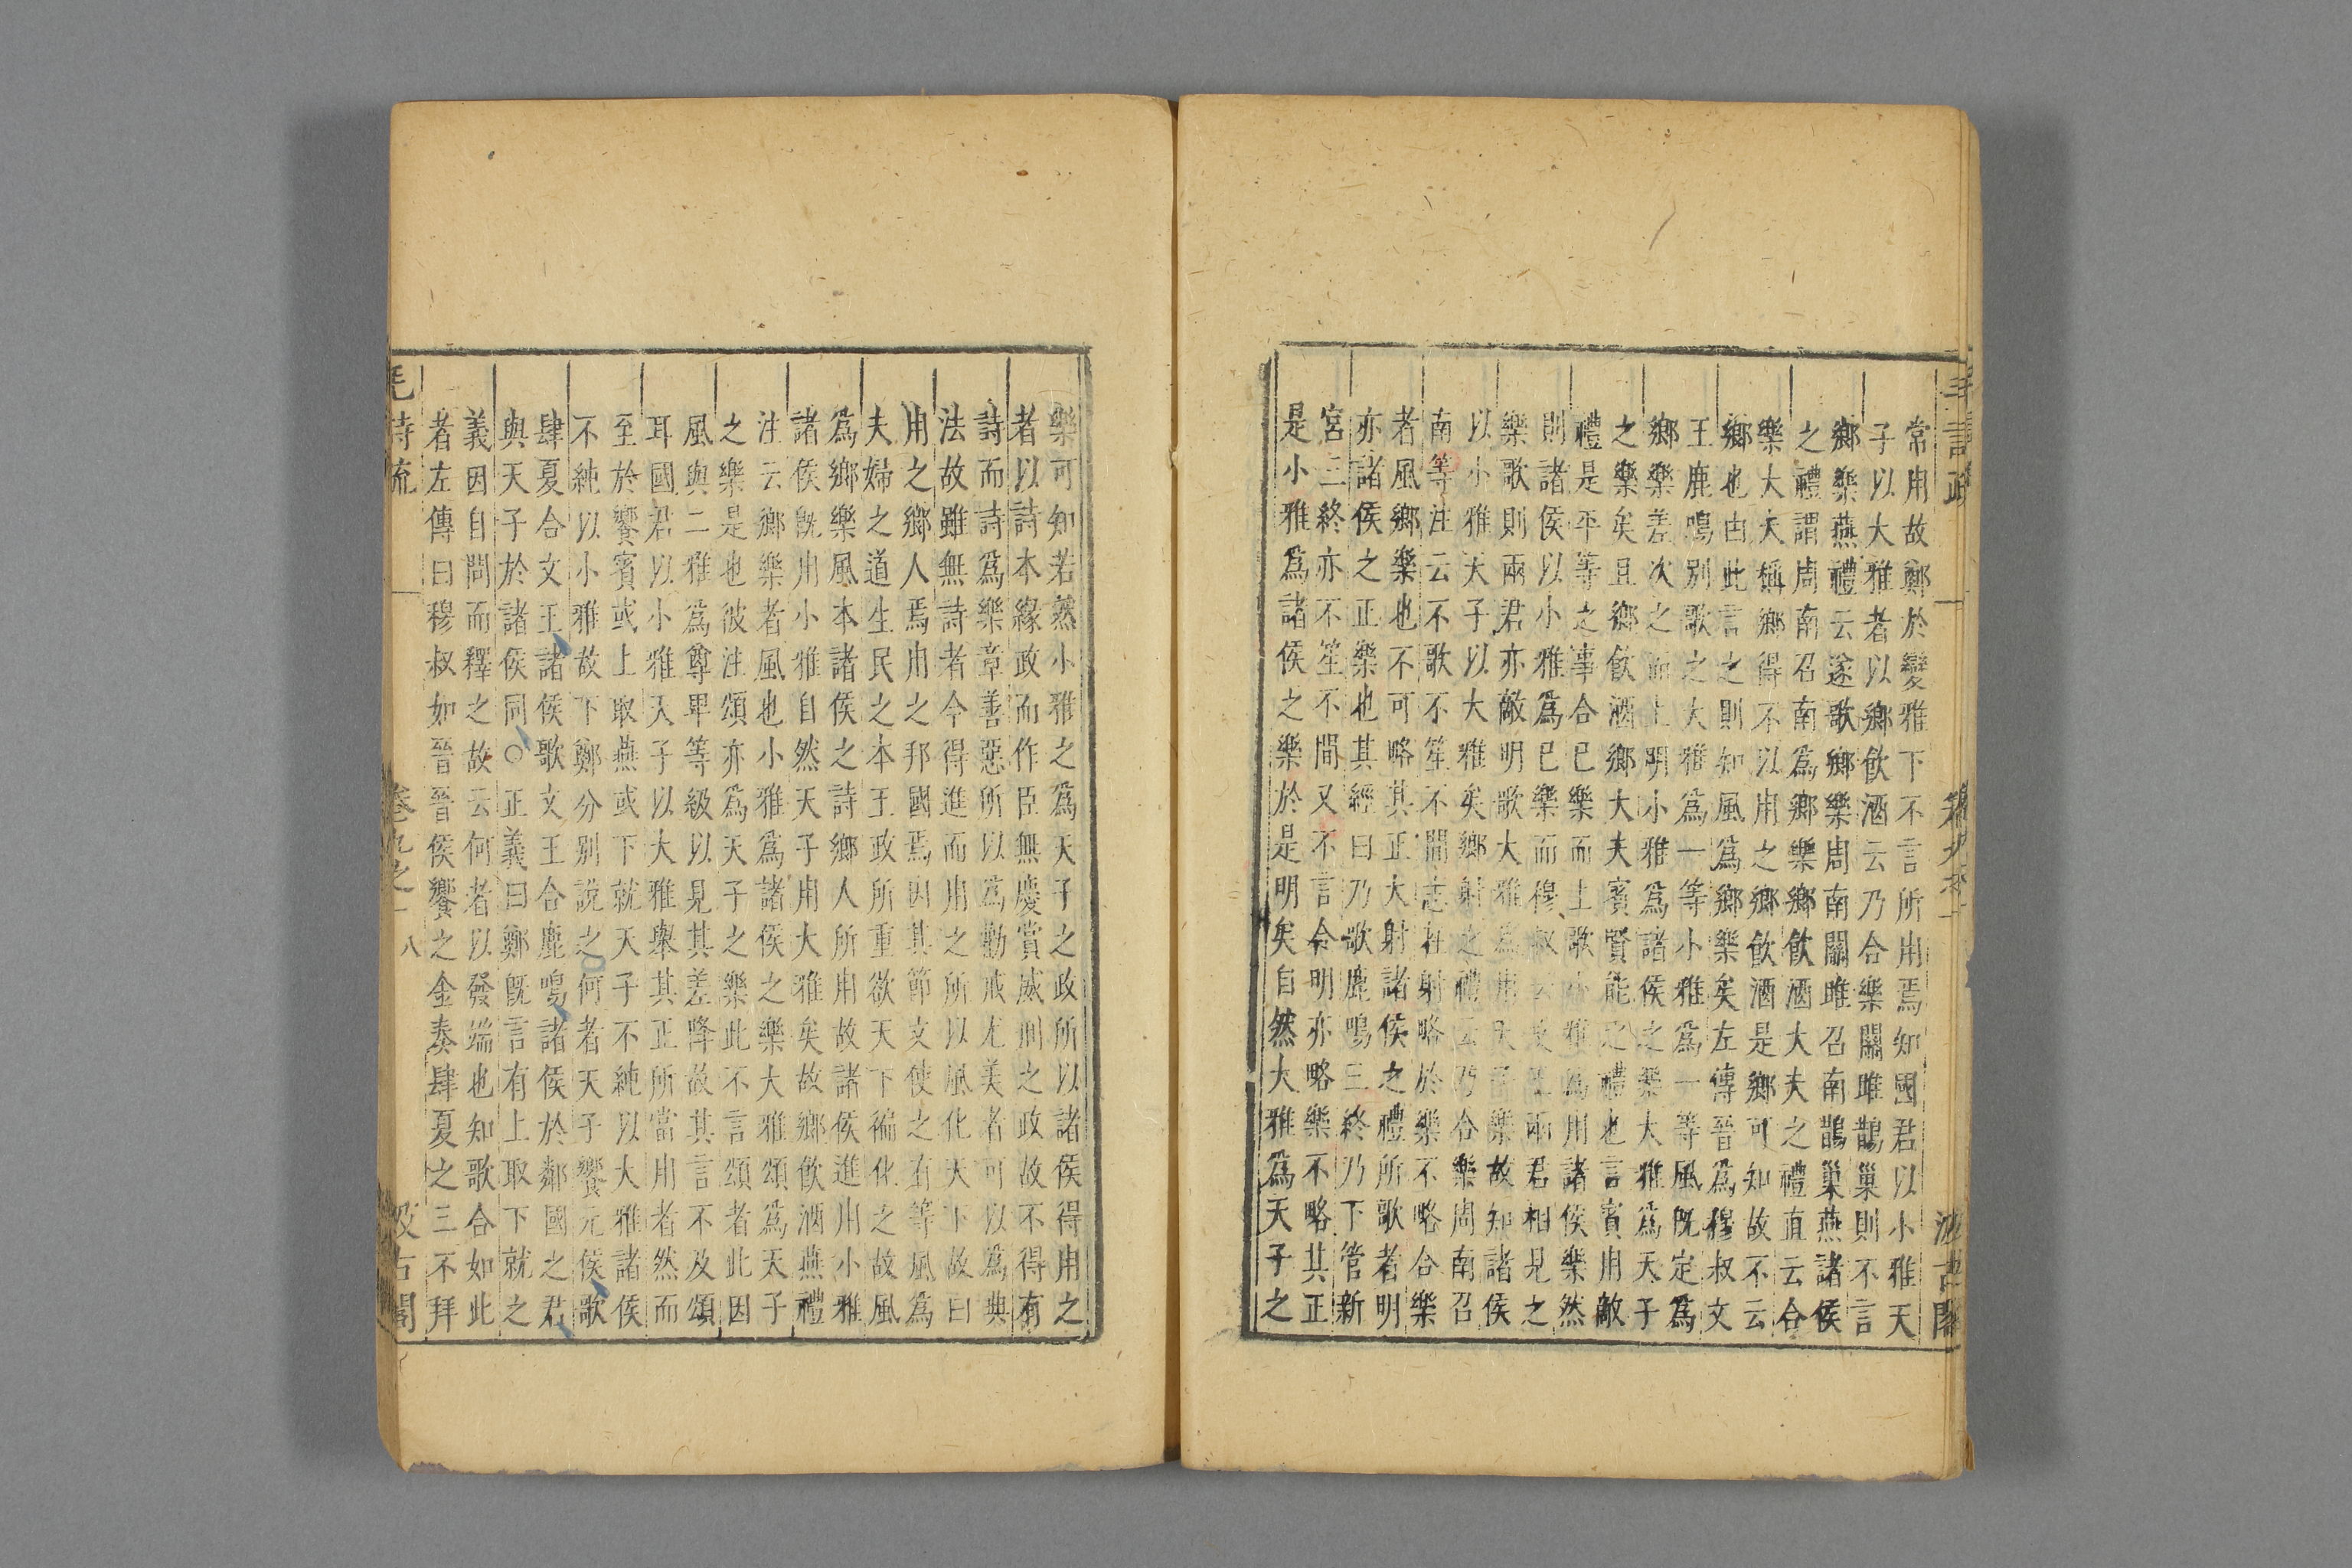 常用故鄭於變雅下不言所用焉知國君以小雅天
子以大雅者以鄉飲酒云乃合樂關雎鵲巢則不言
鄉樂燕禮云遂歌鄉樂周南關雎召南鵲巢燕諸侯
之禮謂周南召南為鄉樂鄉飲酒大夫之禮直云合
樂大夫稱鄉得不以用之鄉飲酒是鄉可知故不云
鄉也由此言之則知風為鄉樂矣左傳晉為穆叔文
王鹿鳴別歌之大雅為一等小雅為一等風既定為
鄉樂差次之而上明小雅為諸侯之樂大雅為天子
之樂矣且鄉飲酒鄉大夫賓賢能之禮也言賓用敵
禮是平等之事合已樂而上歌小雅為用諸侯樂然
則諸侯以小雅為已樂而穆叔云文王兩君相見之
樂歌則兩君亦敵明歌大雅為用天子樂故知諸侯
以小雅天子以大雅矣鄉射之禮云乃合樂周南召
南等注云不歌不笙不間志在射略於樂不略合樂
者風鄉樂也不可略其正大射諸侯之禮所歌者明
亦諸侯之正樂也其經曰乃歌鹿鳴三終乃下管新
宮三終亦不笙不間又不言合明亦略樂不略其正
是小雅為諸侯之樂於是明矣自然大雅為天子之
樂可知若然小雅之為天子之政所以諸侯得用之
者以詩本緣政而作臣無慶賞威刑之政故不得有
詩而詩為樂章善惡所以為勸戒尤美者可以為典
法故雖無詩者今得進而用之所以風化天下故曰
用之鄉人焉用之邦國焉因其節文使之有等風為
夫婦之道生民之本王政所重欲天下徧化之故風
為鄉樂風本諸侯之詩鄉人所用故諸侯進用小雅
諸侯既用小雅自然天子用大雅矣故鄉飲酒燕禮
注云鄉樂者風也小雅為諸侯之樂大雅頌為天子
之樂是也彼注頌亦為天子之樂此不言頌者此因
風與二雅為尊卑等級以見其差降故其言不及頌
耳國君以小雅天子以大雅舉其正所當用者然而
至於饗賓或上取燕或下就天子不純以大雅諸侯
不純以小雅故下鄭分別說之何者天子饗元侯歌
肆夏合文王諸侯歌文王合鹿鳴諸侯於鄰國之君
與天子於諸侯同○正義曰鄭既言有上取下就之
義因自問而釋之故云何者以發端也知歌合如此
者左傳曰穆叔如晉晉侯饗之金奏肆夏之三不拜
毛詩疏 卷九之一 八 汲古閣